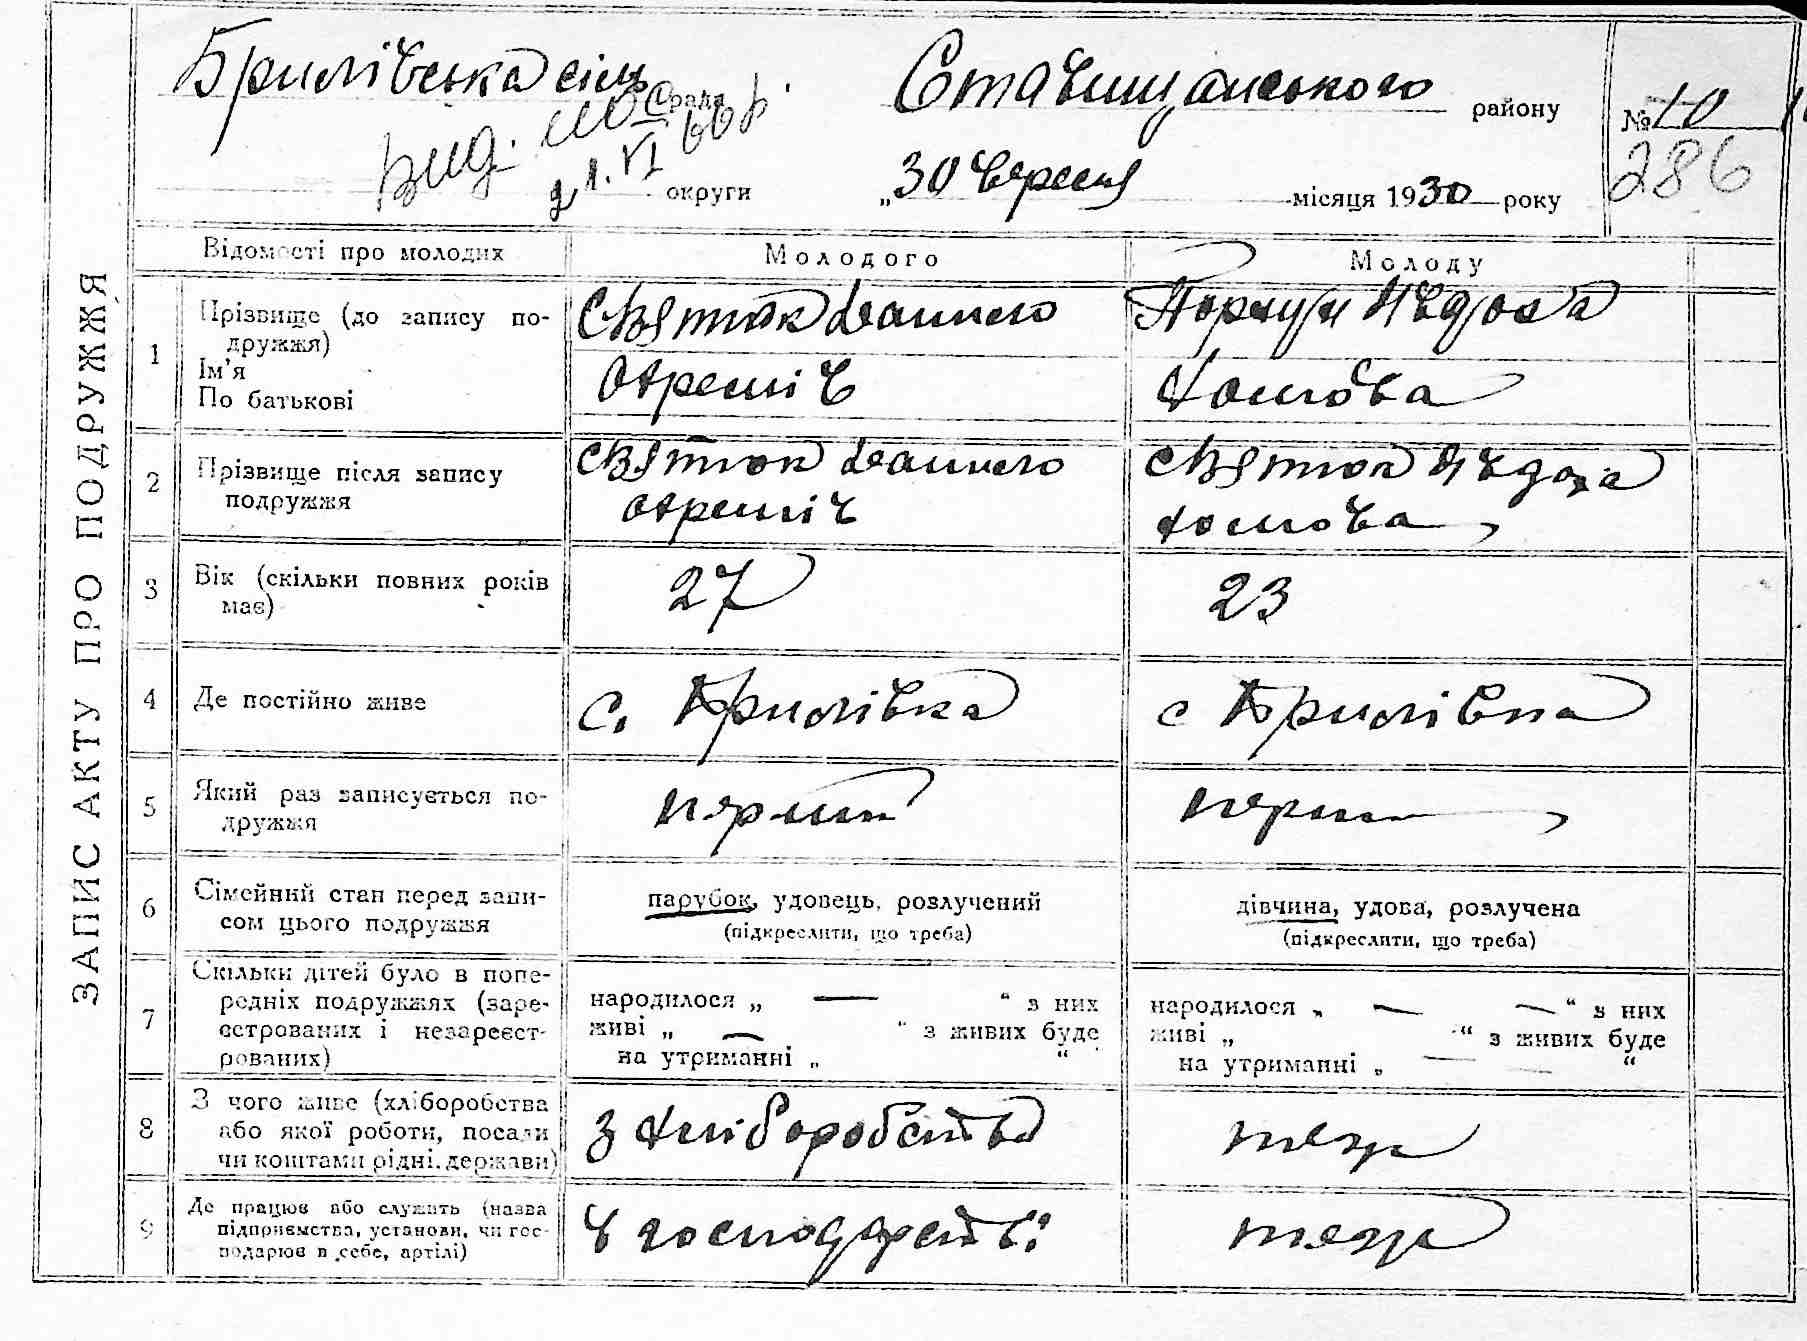 ЗАПИС АКТУ ПРО ПОДРУЖЖЯ
Брилівська сільрада Ставищанського району № 10
Вид.
21.VI 66 р. 286
округи „30 вересня місяця 1930 року
Відомості про молодих Молодого Молоду
1 Прізвище (до запису подружжя) Святюк Данило Явдоха
Ім'я
По батькові Яремів Хомова
2 Прізвище після запису подружжя Святюк Данило Святюк Явдоха
Яремів Хомова
3 Вік (скільки повних років має) 27 23
4 Де постійно живе с. Брилівка с Брилівка
5 Який раз записується подружжя перший перший
6 Сімейний стан перед записом цього подружжя парубок, удовець, розлучений дівчина, удова, розлучена
(підкреслити, що треба) (підкреслити, що треба)
7 Скільки дітей було в попередніх подружжях (зареєстрованих і незареєстрованих) народилося „ — “ з них народилося „ — — “ з них
живі „ — “ з живих буде живі „ “ з живих буде
на утриманні „ “ на утриманні „ — “
8 З чого живе (хліборобства або якої роботи, посади чи коштами рідні, держави) З хліборобства теж
9 Де працює або служить (назва підприємства, установи, чи господарює в себе, артілі) в господарстві теж